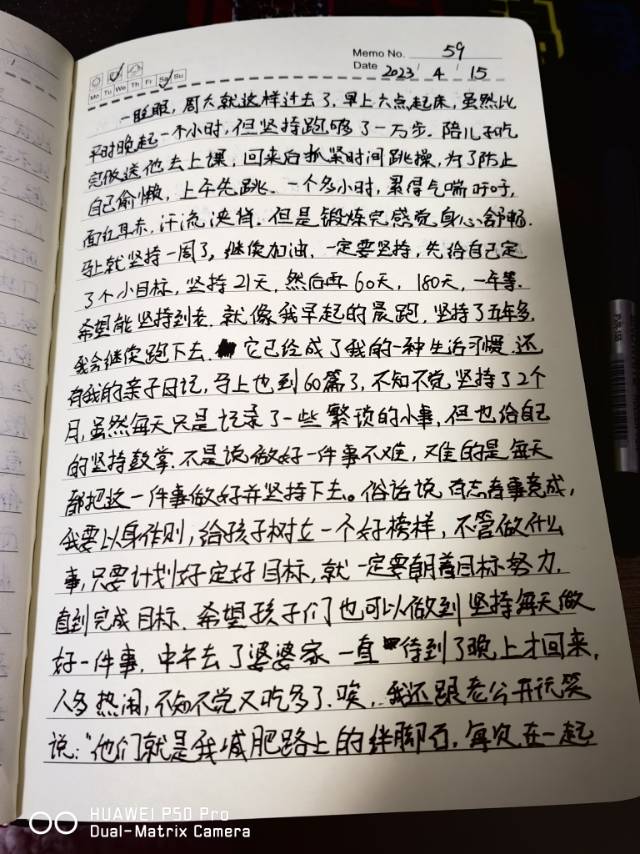 Memo No. 59
Mo Tu We Th Fr Sa Su
Date 2023 / 4 / 15
一眨眼，周六就这样过去了，早上六点起床，虽然比
平时晚起一个小时，但坚持跑够了一万步。陪儿子吃
完饭送他去上课，回来后抓紧时间跳操，为了防止
自己偷懒，上午先跳。一个多小时，累得气喘吁吁，
面红耳赤，汗流浃背。但是锻炼完感觉身心舒畅.
马上就坚持一周了，继续加油，一定要坚持，先给自己定
了个小目标，坚持21天，然后再60天，180天，一年等.
希望能坚持到老，就像我早起的晨跑，坚持了五年多，
我会继续跑下去，它已经成了我的一种生活习惯，还
有我的亲子日记，马上也到60篇了，不知不觉坚持了2个
月，虽然每天只是记录了一些繁琐的小事，但也给自己
的坚持鼓掌.不是说做好一件事不难，难的是每天
都把这一件事做好并坚持下去。俗话说有志者事竟成，
我要以身作则，给孩子树立一个好榜样，不管做什么
事，只要计划好定好目标，就一定要朝着目标努力，
直到完成目标、希望孩子们也可以做到坚持每天做
好一件事.中午去了婆婆家一直待到了晚上才回来，
人多热闹，不知不觉又吃多了、唉，我还跟老公开玩笑
说："他们就是我减肥路上的绊脚石，每次在一起
HUAWEI P50 Pro
Dual-Matrix Camera